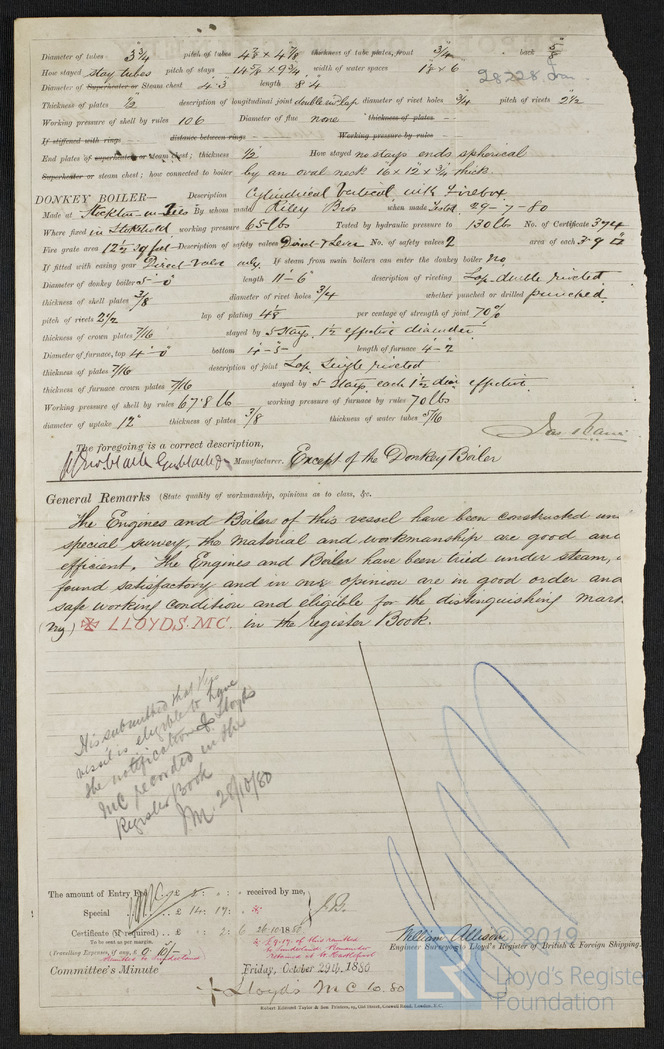 Diameter of tubes 3 3/4 pitch of tubes 4 7/8 × 4 7/8 thickness of tube plates, front 3/4 back
How stayed stay tubes pitch of stays 14 5/8 × 9 3/4 width of water spaces × 6
Diameter of Superheater or Steam chest 4.3 length 8 1/4 28228 Iron
Thickness of plates 1/2 description of longitudinal joint double riv Lap diameter of rivet holes 3/4 pitch of rivets 2 1/2
Working pressure of shell by rules 106 Diameter of flue none thickness of plates
If stiffened with rings distance between rings Working pressure by rules
End plates of superheater or steam chest; thickness 1/2 How stayed no stays ends spherical
Superheater or steam chest; how connected to boiler by an oval neck 16 × 12 × 3/4 thick.
DONKEY BOILER— Description Cylindrical Vertical with Firebox
Made at Stockton-on-Tees By whom made Riley Bros when made Tested 29-7-80
Where fixed in Stokehold working pressure 65 lbs Tested by hydraulic pressure to 130 lbs No. of Certificate 374
Fire grate area 12 1/2 sq feet Description of safety valves Direct & Lever No. of safety valves 2 area of each 3.9
If fitted with easing gear Direct Valve only. If steam from main boilers can enter the donkey boiler No
Diameter of donkey boiler 5-0 length 11-6 description of riveting Lap double riveted
thickness of shell plates 3/8 diameter of rivet holes 3/4 whether punched or drilled punched.
pitch of rivets 2 1/2 lap of plating per centage of strength of joint 70%
thickness of crown plates 7/16 stayed by 5 Stays. 1 1/2 effective diameter
Diameter of furnace, top 4-0 bottom 4-5 length of furnace 4-2
thickness of plates 7/16 description of joint Lap. Single riveted
thickness of furnace crown plates 7/16 stayed by 5 Stays, each 1 1/2 diam effective.
Working pressure of shell by rules 67.8 lb working pressure of furnace by rules 70 lbs
diameter of uptake 12" thickness of plates 3/8 thickness of water tubes 5/16
The foregoing is a correct description,
Manufacturer. Except of the Donkey Boiler
General Remarks (State quality of workmanship, opinions as to class, &c.
The Engines and Boilers of this vessel have been constructed
special survey, the material and workmanship are good and
efficient. The Engines and Boiler have been tried under steam,
found satisfactory and in our opinion are in good order and
safe working condition and eligible for the distinguishing mark
LLOYDS. M.C. in the register Book.
It is submitted that this
vessel is eligible to have
the notification of Lloyds
MC recorded in the
Register Book
28/10/80
The amount of Entry Fee .. £ : : received by me,
Special .. £ 14: 17:
Certificate (if required) .. £ : 2: 6 26.10.1880
To be sent as per margin.
(Travelling Expenses, if any, £
William Allison
Engineer Surveyor to Lloyd's Register of British & Foreign Shipping.
Committee's Minute Friday, October 29th, 1880
+ Lloyd's M C 10.80
Robert Edmund Taylor & Son Printers, 19, Old Street, Goswell Road, London, E.C.
© 2019
LR
Lloyd's Register
Foundation